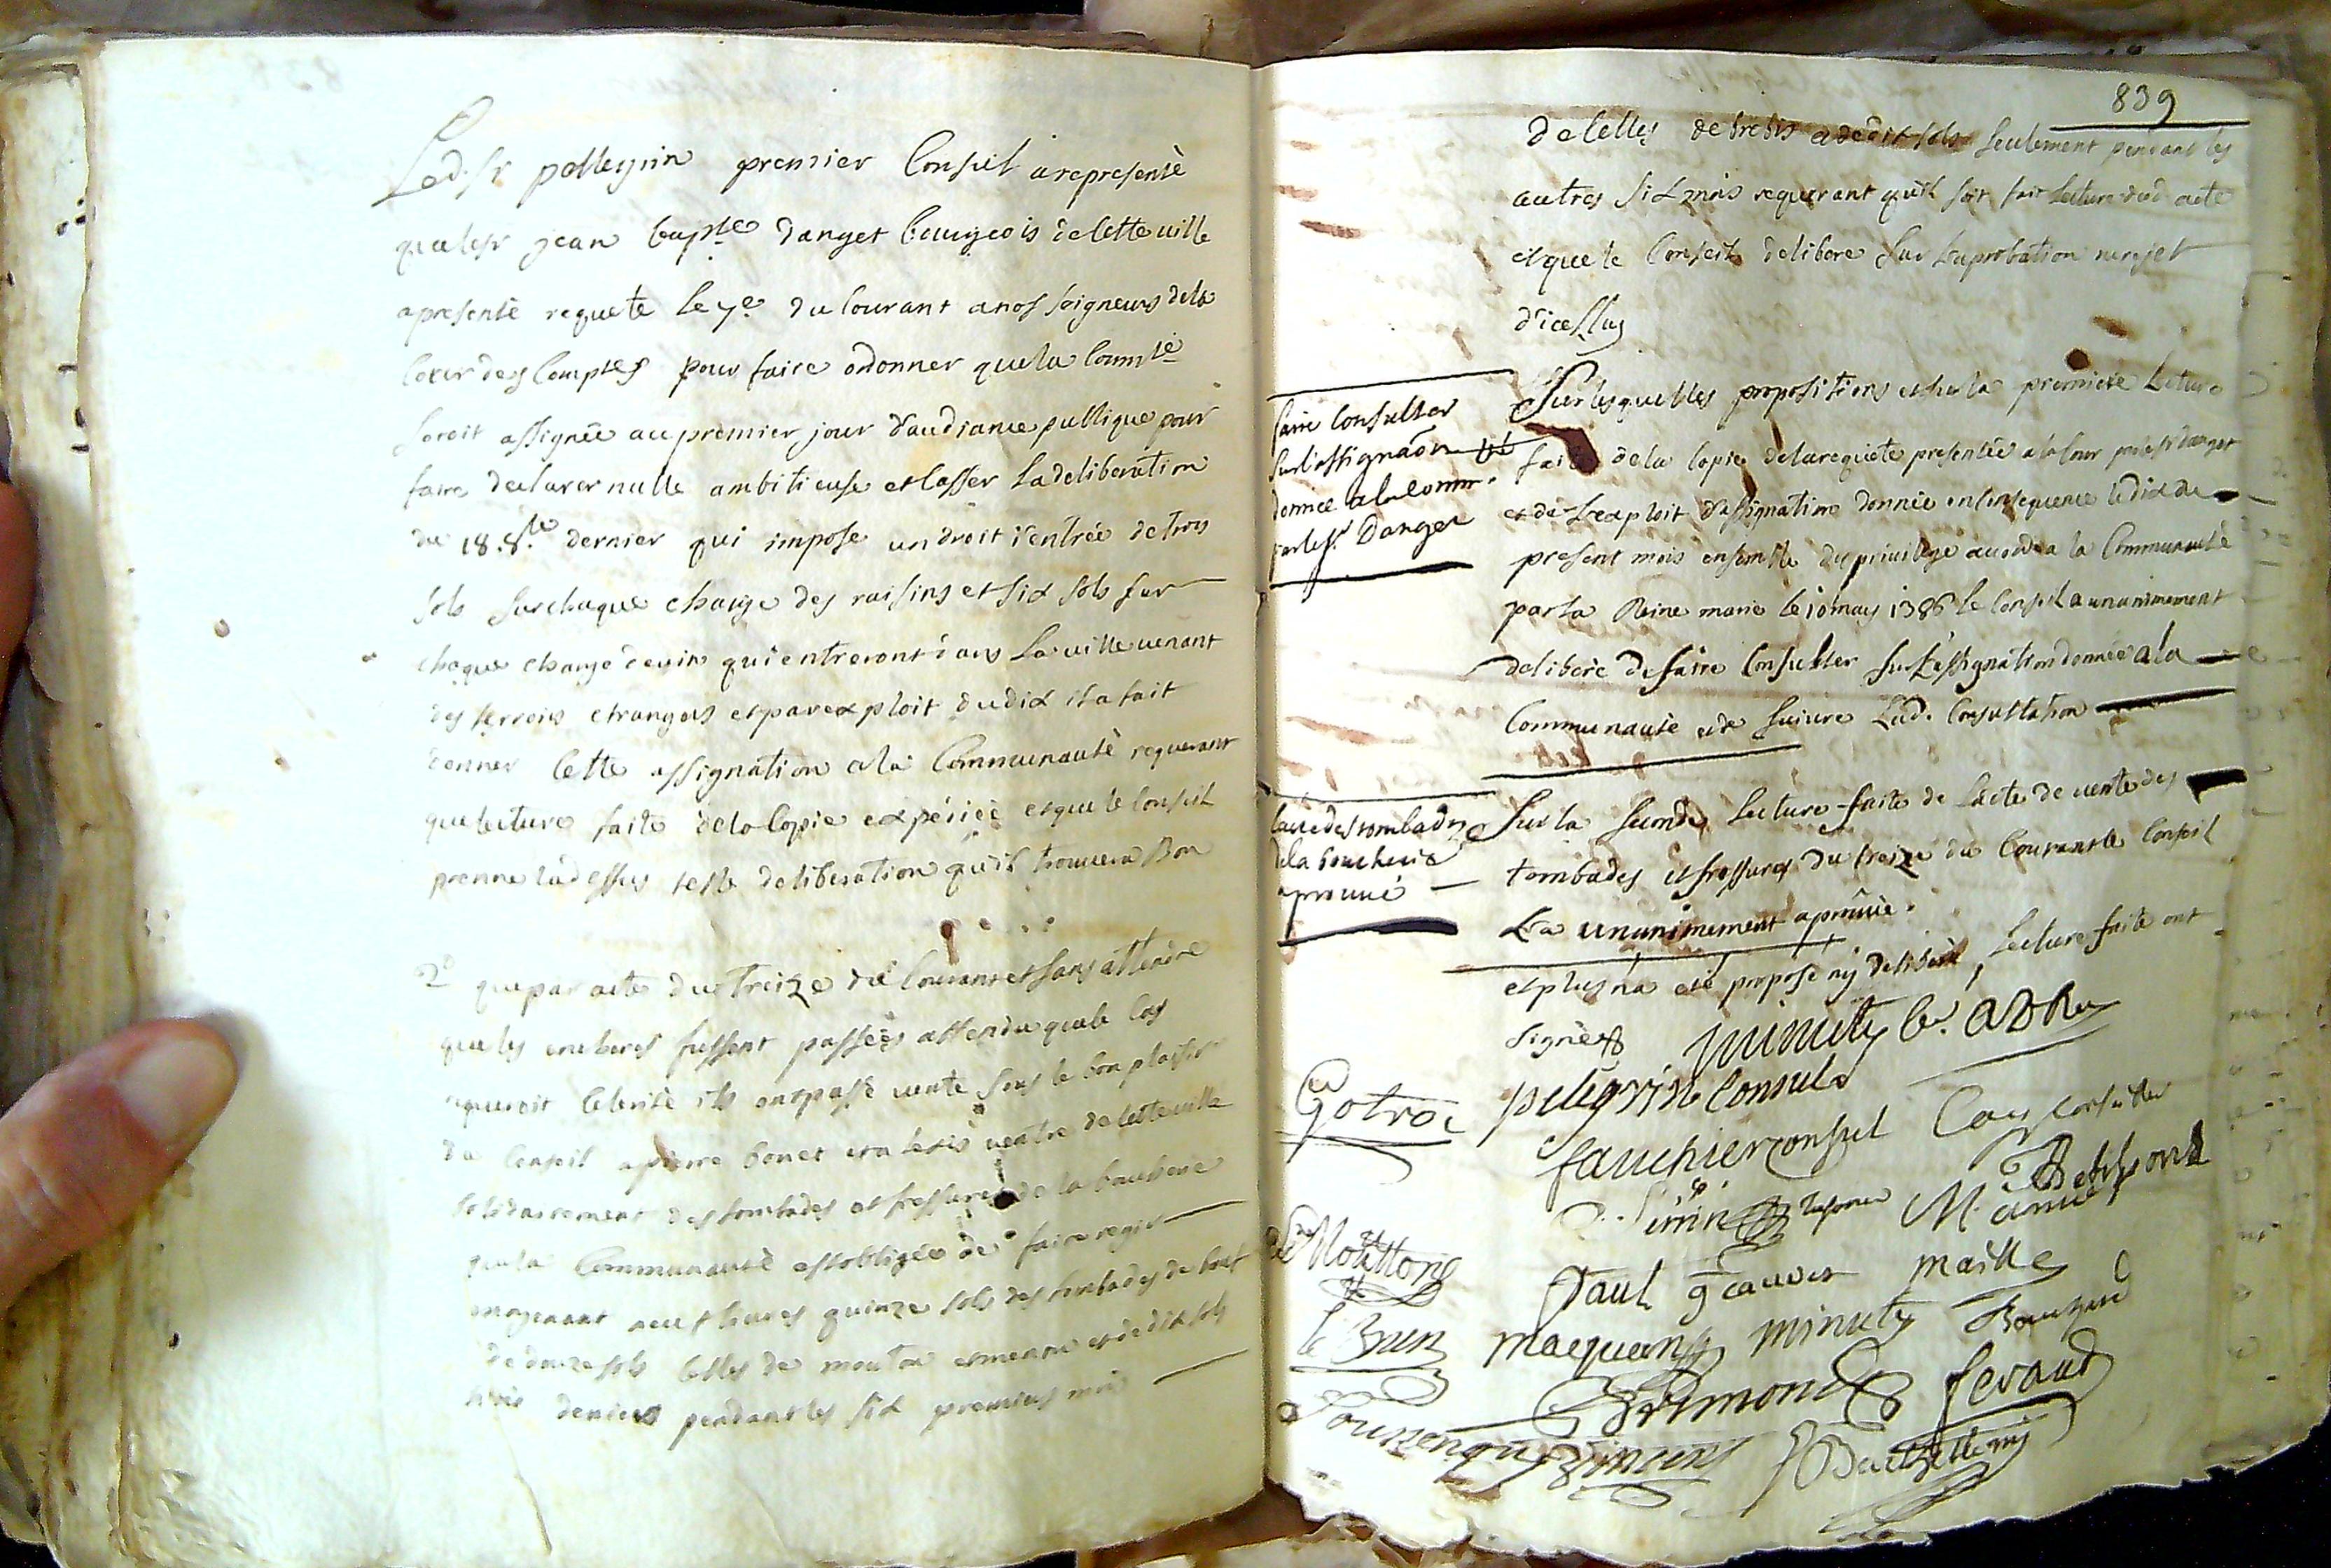 Led. sr pellegrin premier Consul a representè
que le sr jean bapte. danget bourgeois de cette ville
a presenté requete le 7e. du Courant a nos seigneurs de la
Cour des Comptes pour faire ordonner que la Commté
seroit assignée au premier jour d'audiance publique pour
faire declarer nulle ambitieuse et Casser La deliberation
du 18. 8.bre dernier qui impose un droit d'entrée de trois
sols sur chaque charge des raisins et six sols sur
chaque charge de vin qui entreront dans La ville venant
des terroirs etrangers et par exploit du dix il a fait
donner Cette assignation a la Communauté requerant
que lecture faite de la Copie expediée et que le Conseil
prenne la dessus telle deliberation qu'il trouvera Bon
2° que par acte du treize du Courant et sans attendre
que les encheres fussent passées attendu que le Cas
requeroit Celerité ils ont passé vente sous le bon plaisir
du Conseil a pierre bonet et a ventre de cette ville
solidairement des tombades et fressures de la boucherie
que la Communauté est obligée de faire regir
moyenant neuf livres quinze sols des tombades de beuf
de douze sols Celles de mouton et menon et de dix sols
trois deniers pendant les six premiers mois
839
de Celles de brebis a de dix sols seulement pendant les
autres six mois requerant qu'il soit fait Lecture dud. acte
et que le Conseil delibere sur L'aprobation ou rejet
d'icelluy
Sur lesquelles propositions et sur la premiere Lecture
faite de la Copie de la requete presentée a la Cour par le sr danget
et de L'exploit d'assignation donnée en Consequence le dix du
present mois ensemble du privilege accordé a la Communauté
par la Reine marie le 10 may 1386 le Conseil a unanimement
deliberé de faire Consulter sur L'assignation donnée a la
Communauté et de suivre Lad. Consultation
faire Consulter
sur l'assignaôn
donnée a la Comm.
par le sr. Danget
Sur la seconde Lecture faite de L'acte de vente des
tombades et fressures du treize du Courant le Conseil
L'a unanimement aprouvé.
l'acte des tombades
de la boucherie
aprouvé
et plus n'a eté proposé ny deliberé, Lecture faite ont
signés
minuty
pelegrin Consul
Gotrot
fauchier Consul
M. amic
Paul
maille
le Brun
minuty
Brémond
feraud
Vincens
Barthellemy